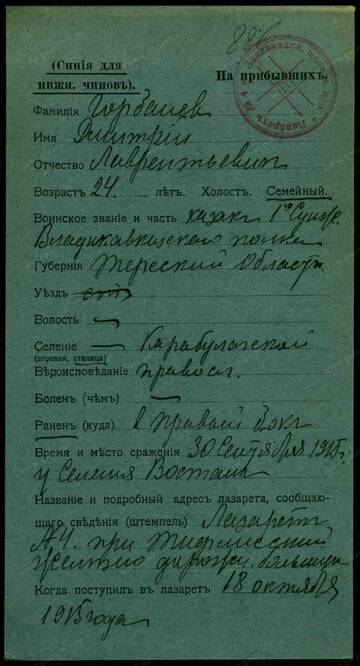 (Синія для
нижн. чиновъ).
На прибывшихъ.
Фамилія Горбацев
Имя Дмитрій
Отчество Лаврентьевич
Возрастъ 24. лѣтъ. Холост. Семейный.
Воинское званіе и часть казак 1го Сунж.
Владикавказскаго полка
Губернія Терской Области
Уѣздъ
Волость
Селеніе Карабулакской
(деревня, станица)
Вѣроисповѣданіе правосл.
Боленъ (чѣмъ)
Раненъ (куда) в правый бок
Время и мѣсто сраженія 30 Сентября 1915г.
у Селения Востан
Названіе и подробный адресъ лазарета, сообщаю-
щаго свѣдѣнія (штемпель) Лазарет
№ 4. при Тифлисской
дорожн. больнице
Когда поступилъ въ лазаретъ 18 октября
1915 года